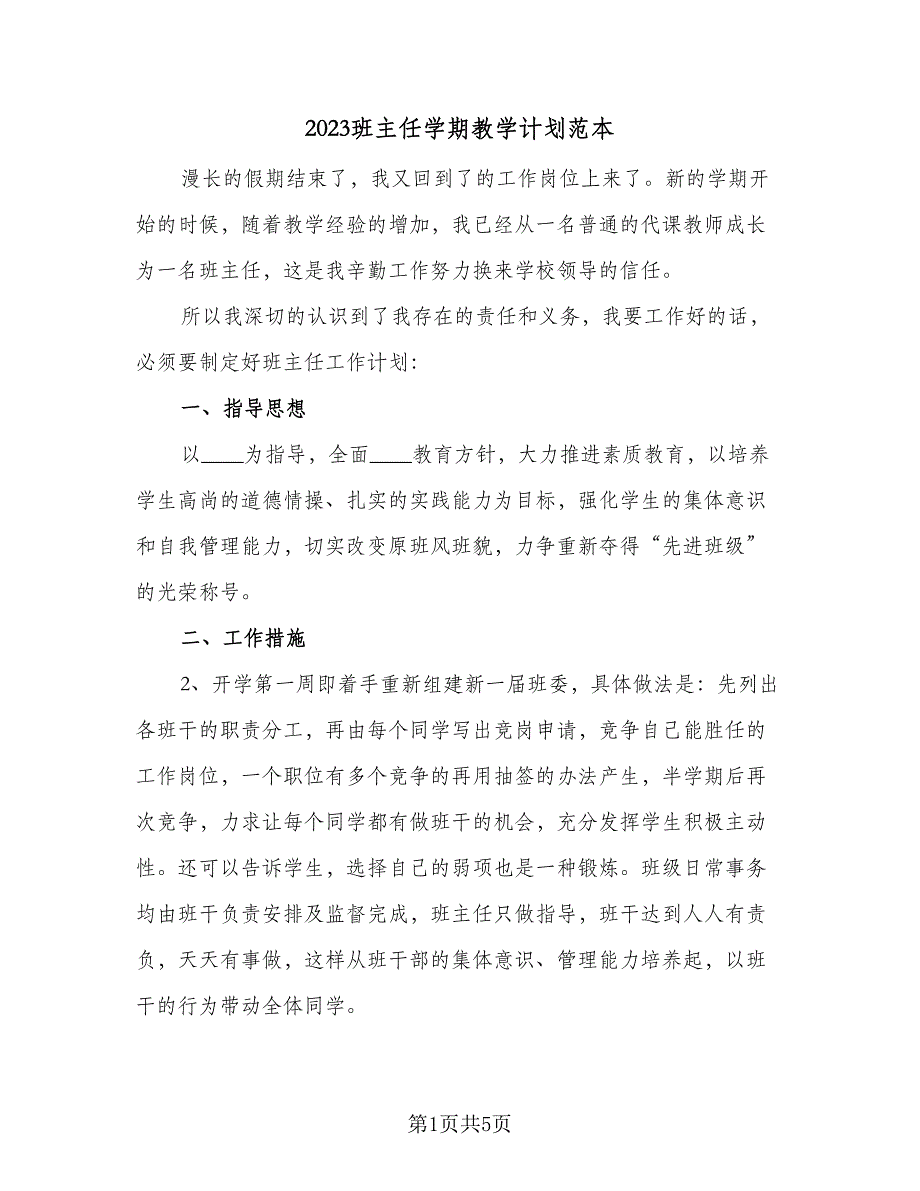 2023班主任学期教学计划范本
漫长的假期结束了，我又回到了的工作岗位上来了。新的学期开
始的时候，随着教学经验的增加，我已经从一名普通的代课教师成长
为一名班主任，这是我辛勤工作努力换来学校领导的信任。
所以我深切的认识到了我存在的责任和义务，我要工作好的话，
必须要制定好班主任工作计划：
一、指导思想
以____为指导，全面____教育方针，大力推进素质教育，以培养
学生高尚的道德情操、扎实的实践能力为目标，强化学生的集体意识
和自我管理能力，切实改变原班风班貌，力争重新夺得“先进班级”
的光荣称号。
二、工作措施
2、开学第一周即着手重新组建新一届班委，具体做法是：先列出
各班干的职责分工，再由每个同学写出竞岗申请，竞争自己能胜任的
工作岗位，一个职位有多个竞争的再用抽签的办法产生，半学期后再
次竞争，力求让每个同学都有做班干的机会，充分发挥学生积极主动
性。还可以告诉学生，选择自己的弱项也是一种锻炼。班级日常事务
均由班干负责安排及监督完成，班主任只做指导，班干达到人人有责
负，天天有事做，这样从班干部的集体意识、管理能力培养起，以班
干的行为带动全体同学。
第1页共5页